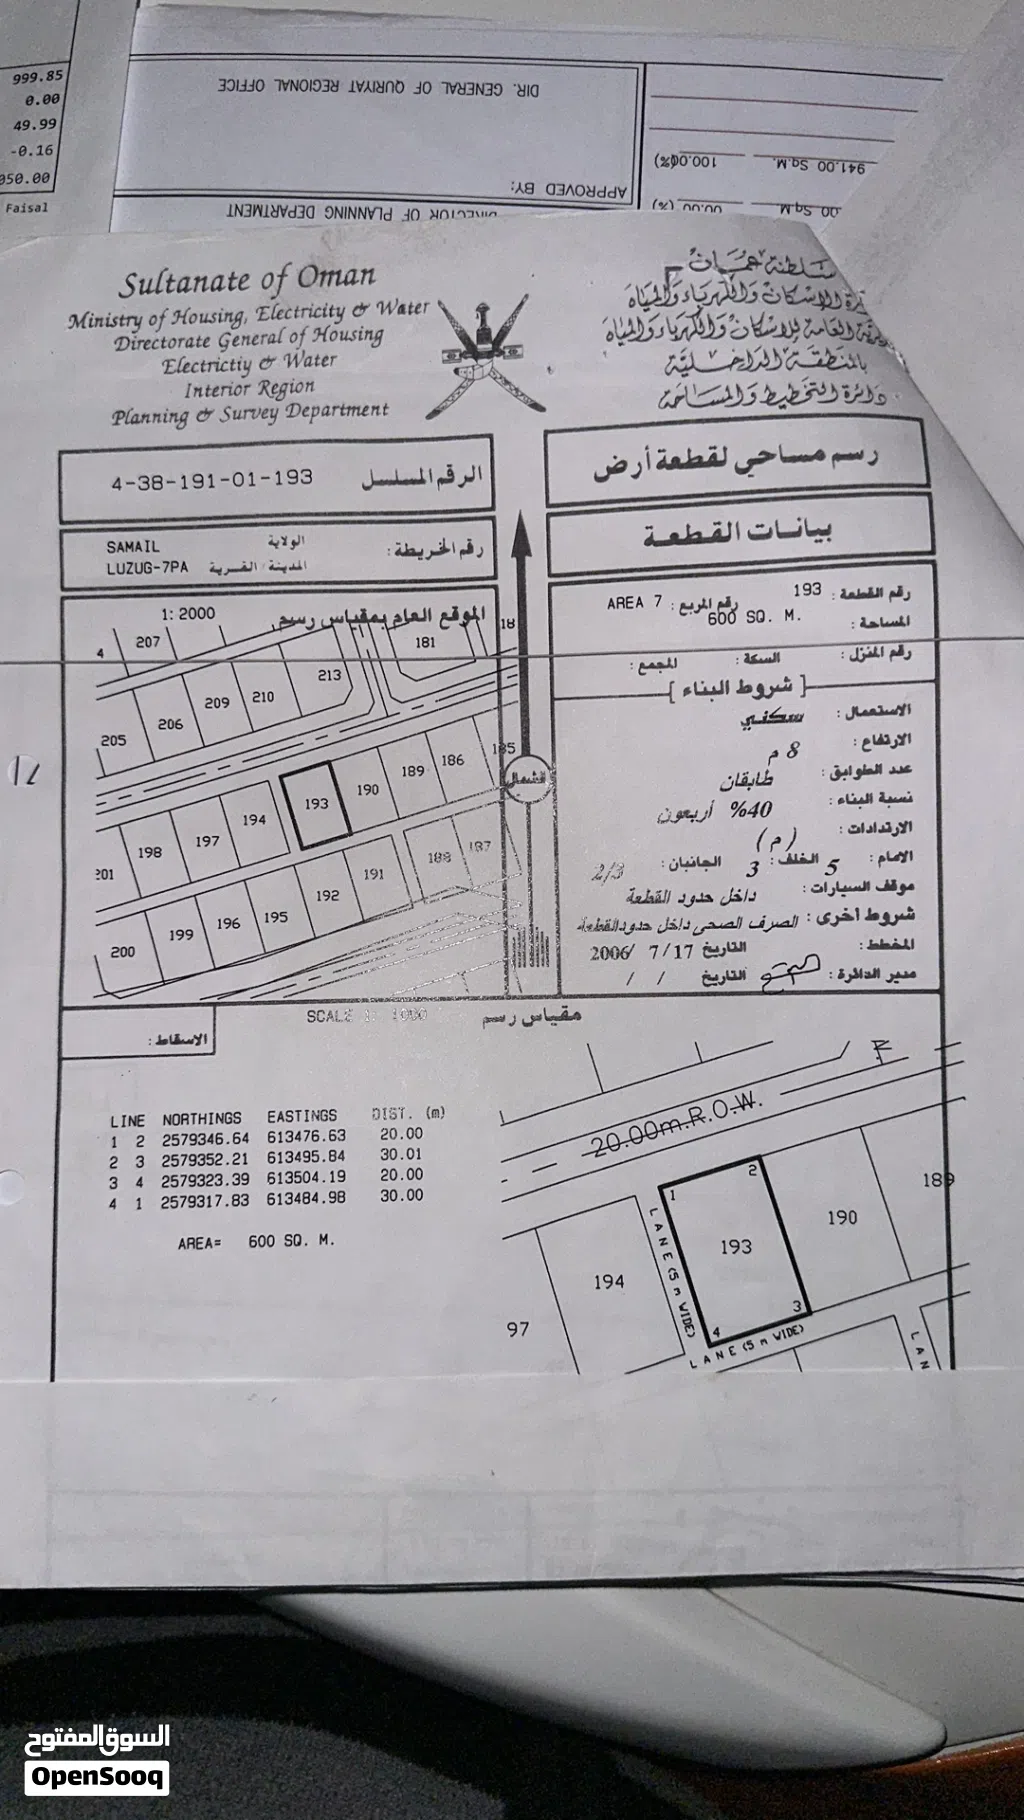 999.85
0.00
49.99
-0.16
050.00
Faisal
DIR. GENERAL OF QURIYAT REGIONAL OFFICE
APPROVED BY:
DIRECTOR OF PLANNING DEPARTMENT
941.00 Sq.M. 100.00(%)
00 Sq.M 00.00 (%)
Sultanate of Oman
Ministry of Housing, Electricity & Water
Directorate General of Housing
Electrictiy & Water
Interior Region
Planning & Survey Department
سلطنة عمان
وزارة الإسكان والكهرباء والمياه
المديرية العامة للإسكان والكهرباء والمياه
بالمنطقة الداخلية
دائرة التخطيط والمساحة
4-38-191-01-193 الرقم المسلسل
رسم مساحي لقطعة أرض
SAMAIL الولاية
LUZUG-7PA المدينة/القرية
رقم الخريطة:
بيانات القطعة
رقم القطعة: 193 رقم المربع: AREA 7
المساحة: 600 SQ. M.
رقم المنزل: السكة: المجمع:
[ شروط البناء ]
الاستعمال: سكني
الارتفاع: 8 م
عدد الطوابق: طابقان
نسبة البناء: 40% أربعون
الارتدادات: (م)
الامام: 5 الخلف: 3 الجانبان: 2/3
موقف السيارات: داخل حدود القطعة
شروط أخرى: الصرف الصحي داخل حدود القطعة
المخطط: التاريخ 17/ 7 /2006
مدير الدائرة: التاريخ / /
الموقع العام بمقياس رسم 1: 2000
4 207 181 18
205 206 209 210 213
201 198 197 194 193 190 189 186 185
200 199 196 195 192 191 188 187
الشمال
21
SCALE 1: 1000 مقياس رسم
الاسقاط:
LINE NORTHINGS EASTINGS DIST. (m)
1 2 2579346.64 613476.63 20.00
2 3 2579352.21 613495.84 30.01
3 4 2579323.39 613504.19 20.00
4 1 2579317.83 613484.98 30.00
AREA= 600 SQ. M.
20.00m.R.O.W.
1 2 3 4
97 194 193 190 189
LANE (5 m WIDE)
LANE (5 m WIDE)
LAN
السوق المفتوح
OpenSooq